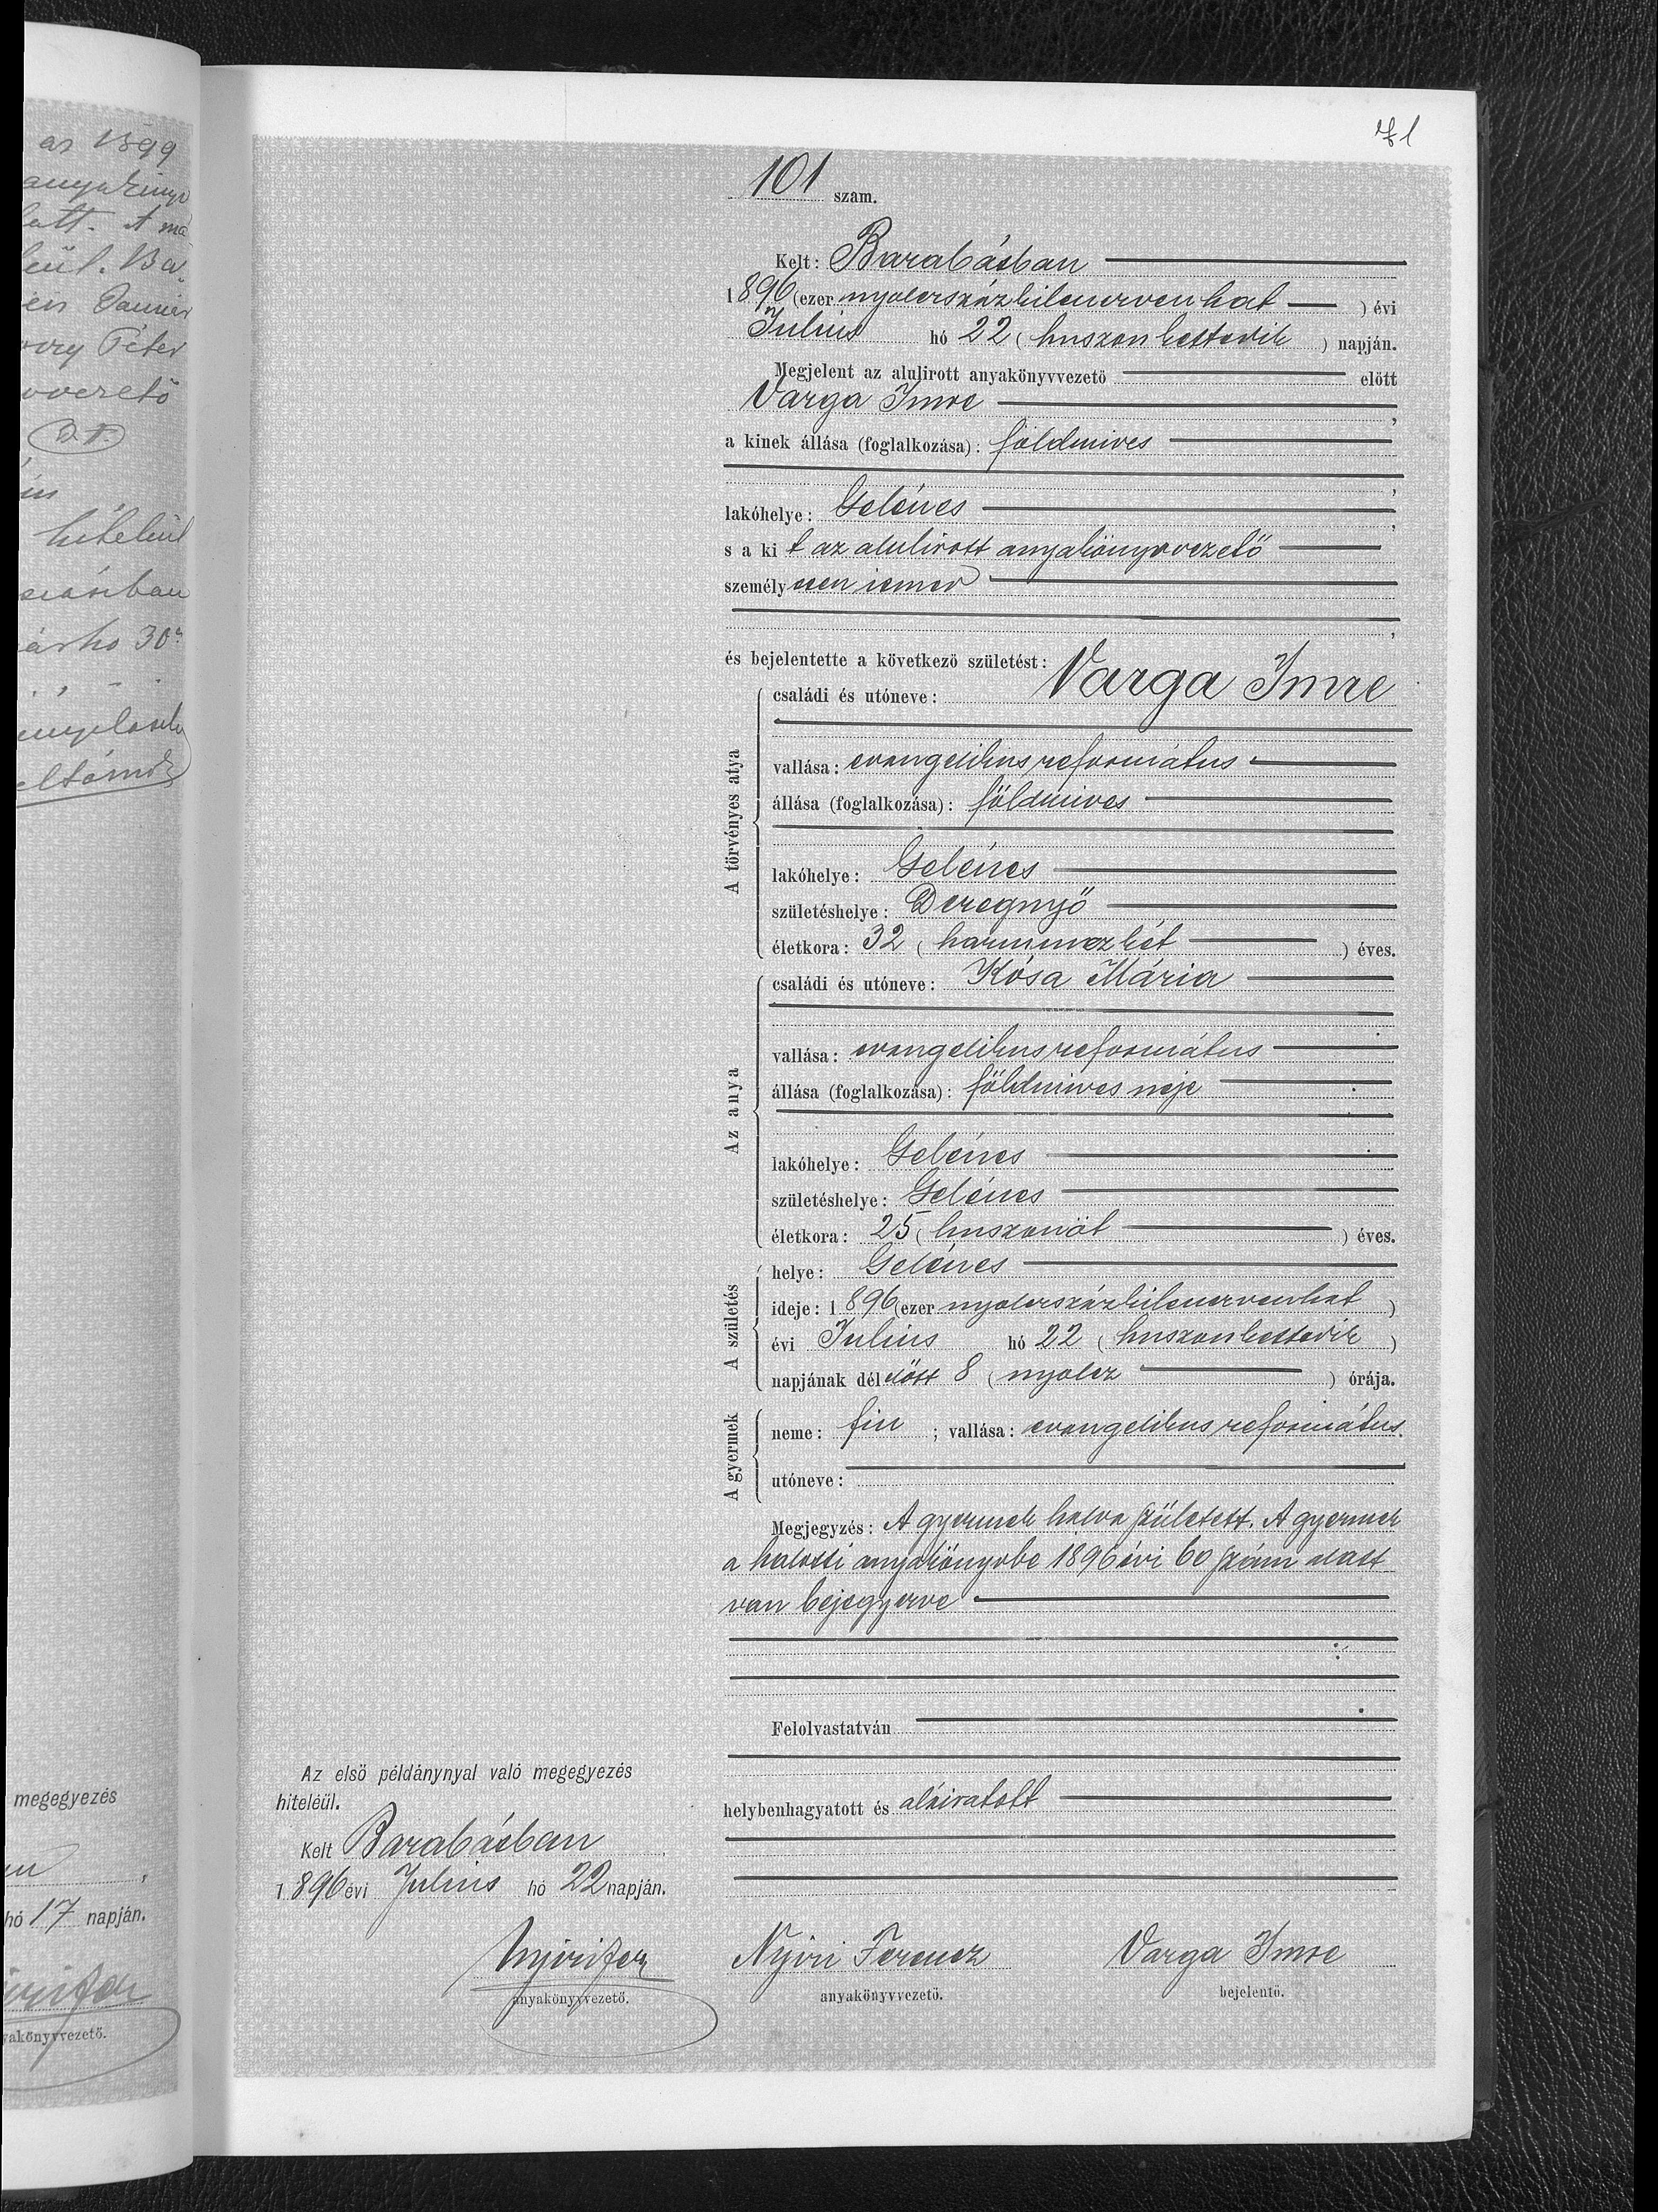 as 1899
anyakönyv
latt. A má
eül. Ba
en Daniel
Péter
vezető
D. F.
hiteléül
árho 30
megegyezés
hó 17 napján.
anyakönyvvezető.
71
101 szam.
Kelt: Barabásban
1896 (ezer nyolczszázkilenczvenhat) évi
Julius hó 22 (huszonkettedik) napján.
Megjelent az alulirott anyakönyvvezető előtt
Varga Imre,
a kinek állása (foglalkozása): földmives
,
lakóhelye: Gelénes,
s a kit az alulirott anyakönyvvezető
személyesen ismer
,
és bejelentette a következő születést:
A törvényes atya
családi és utóneve: Varga Imre
vallása: evangelikus református
állása (foglalkozása): földmives
lakóhelye: Gelénes
születéshelye: Deregnyő
életkora: 32 (harminczkét) éves.
Az anya
családi és utóneve: Kósa Mária
vallása: evangelikus református
állása (foglalkozása): földmives neje
lakóhelye: Gelénes
születéshelye: Gelénes
életkora: 25 (huszonöt) éves.
A születés
helye: Gelénes
ideje: 1896 (ezer nyolczszázkilenczvenhat)
évi Julius hó 22 (huszonkettedik)
napjának délelőtt 8 (nyolcz) órája.
A gyermek
neme: fiu; vallása: evangelikus református.
utóneve:
Megjegyzés: A gyermek halva született. A gyermek
a halotti anyakönyvbe 1896 évi 60 szám alatt
van bejegyezve
Felolvastatván
helybenhagyatott és aláiratott
Az első példánynyal való megegyezés
hiteléül.
Kelt Barabásban
1896 évi Julius hó 22 napján.
Nyiri Fer
anyakönyvvezető.
Nyiri Ferencz
anyakönyvvezető.
Varga Imre
bejelentő.